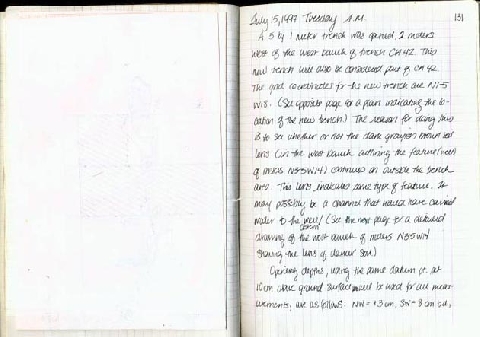 July 15, 1997 Tuesday A.M. 131
A 5 by 1 meter trench was opened, 2 meters
west of the west baulk of trench CH42. This
new trench will also be considered part of CH42.
The grid coordinates for the new trench are N11-5
W18. (See opposite page for a plan indicating the lo-
cation of the new trench.) The reason for doing this
is to see whether or not the dark greyish brown soil
lens (in the west baulk outlining the feature
of meters N5-5W14) continues on outside the trench
area. This lens indicates some type of feature. It
may possibly be a channel that would have carried
water to the west. (See the next page for a detailed
drawing of the west baulk of meters N5-5W14
showing the lens of darker soil.)
Opening depths, using the same datum pt. at
10cm above ground surface used for all meas-
urements, are as follows: NW = 13 cm, SW = 8 cm